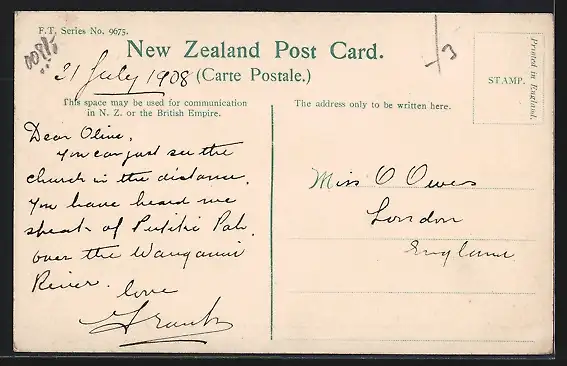 F.T. Series No. 9675.
New Zealand Post Card.
21 July 1908 (Carte Postale.)
This space may be used for communication
in N. Z. or the British Empire.
The address only to be written here.
STAMP.
Printed in England.
Dear Olive,
You can just see the
church in the distance.
You have heard me
speak of Putiki Pah.
over the Wanganui
River. love
Frank
Miss O Owes
London
England